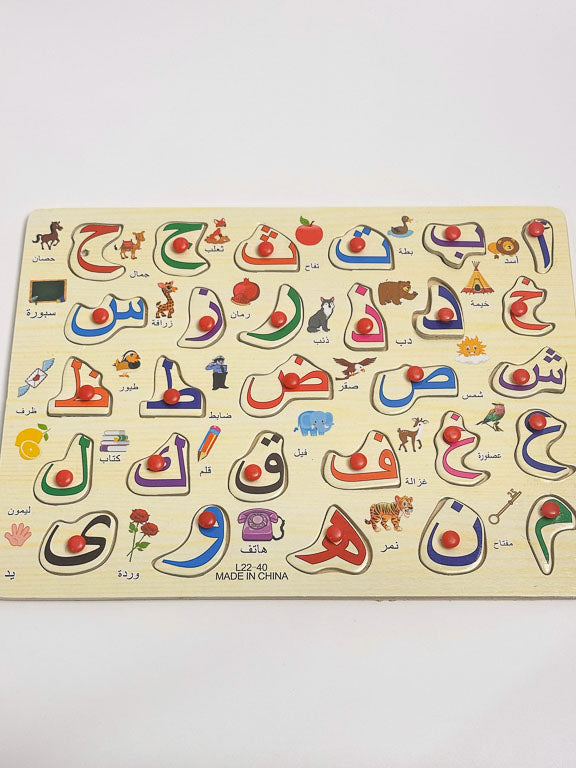 أ أسد ب بطة ت تفاح ث ثعلب ج جمال ح حصان
خ خيمة د دب ذ ذئب ر رمان ز زرافة س سبورة
ش شمس ص صقر ض ضابط ط طيور ظ ظرف
ع عصفورة غ غزالة ف فيل ق قلم ك كتاب ل ليمون
م مفتاح ن نمر ه هاتف و وردة ى يد
L22-40
MADE IN CHINA